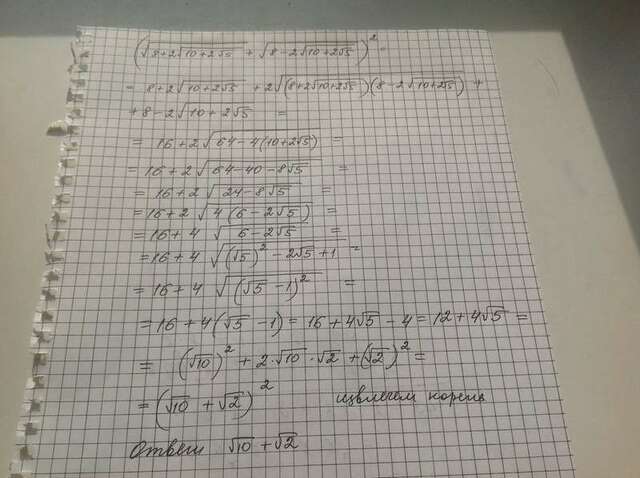 (√(8+2√(10+2√5)) + √(8-2√(10+2√5)))² =
= 8+2√(10+2√5) + 2√((8+2√(10+2√5))(8-2√(10+2√5))) +
+ 8-2√(10+2√5) =
= 16+2√(64-4(10+2√5)) =
= 16+2√(64-40-8√5) =
= 16+2√(24-8√5) =
= 16+2√(4(6-2√5)) =
= 16+4√(6-2√5) =
= 16+4√((√5)²-2√5+1) =
= 16+4√((√5-1)²) =
= 16+4(√5-1) = 16+4√5-4 = 12+4√5 =
= (√10)² + 2·√10·√2 + (√2)² =
= (√10+√2)² извлечем корень
Ответ √10+√2